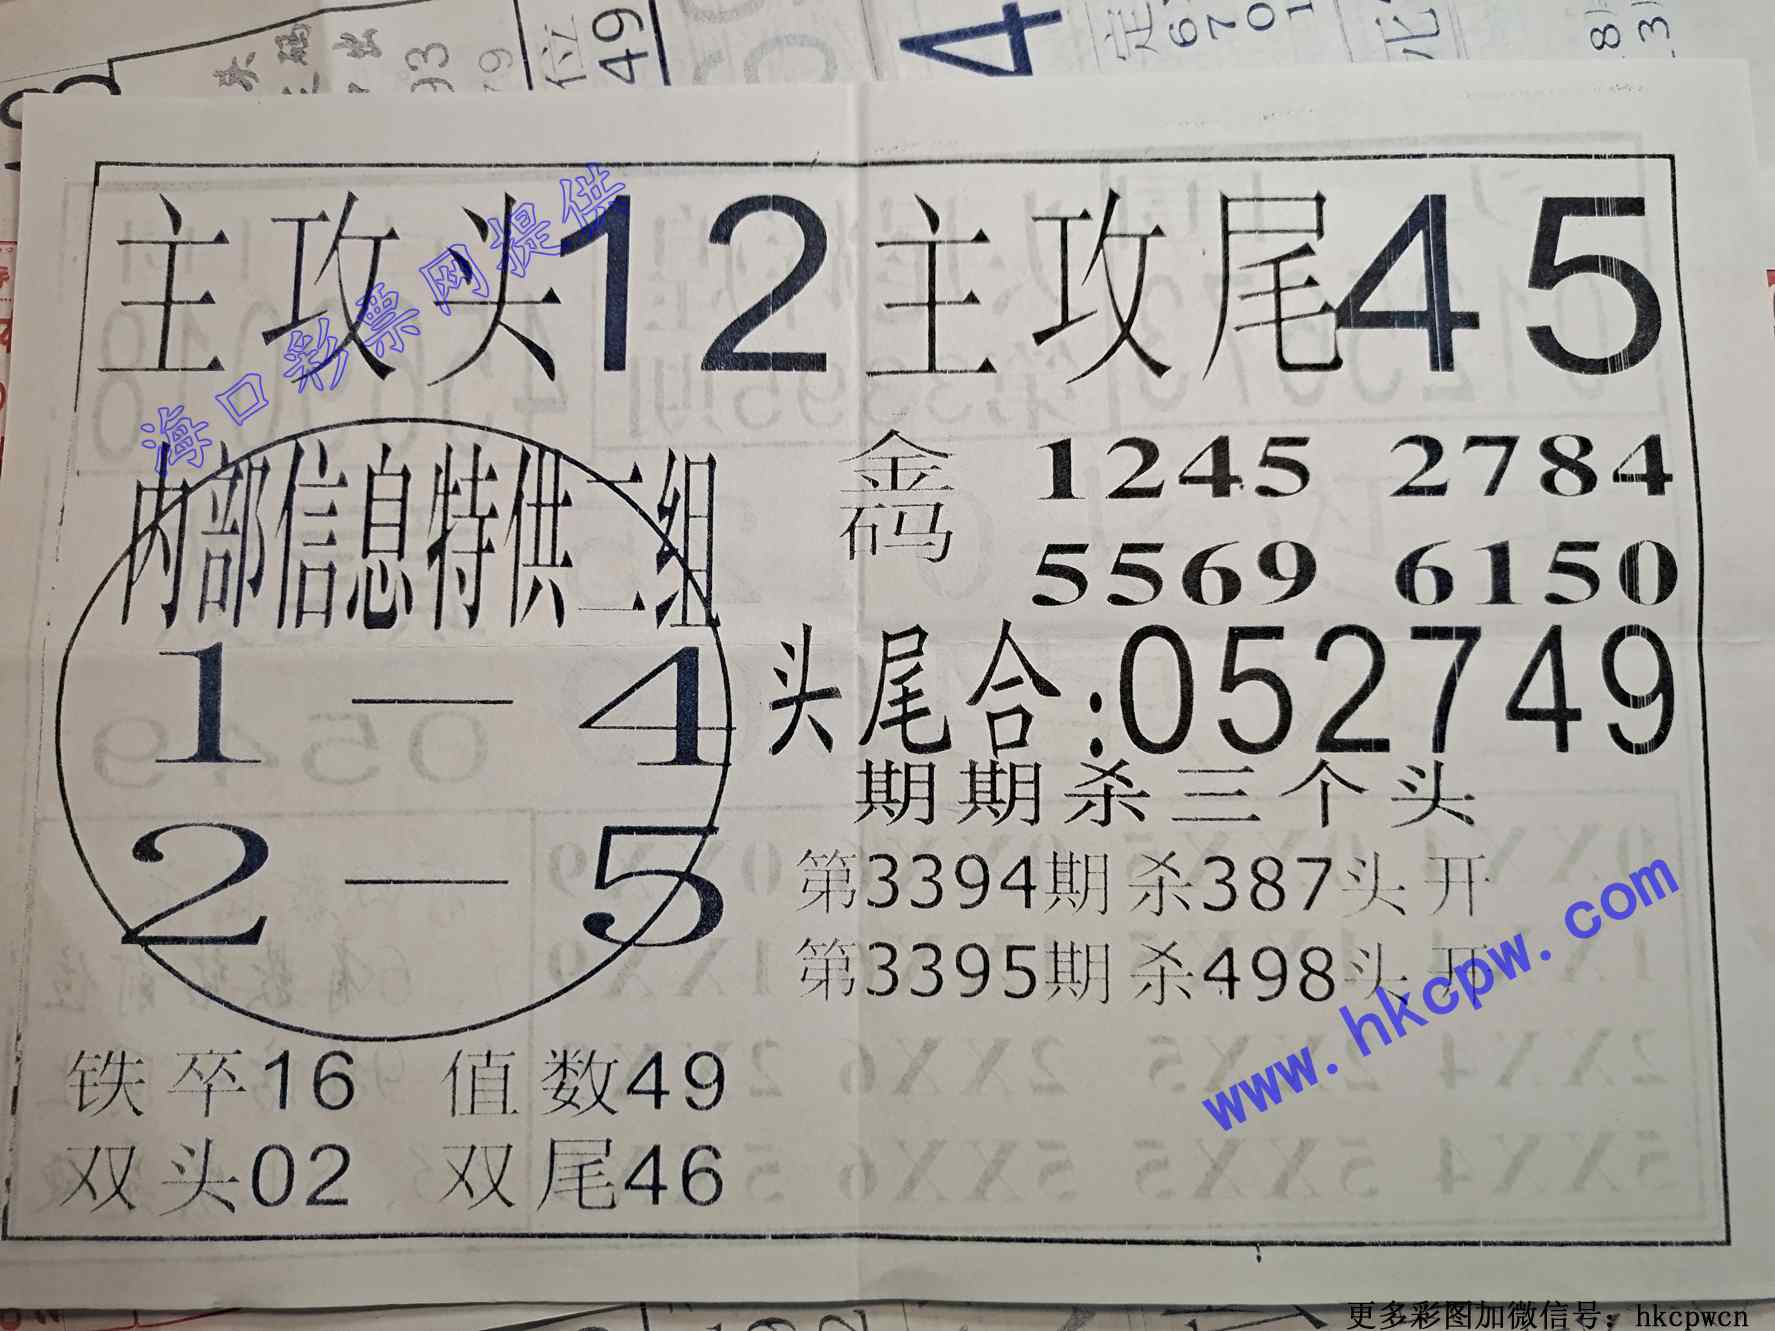 位
49
4
主攻头12 主攻尾45
海口彩票网提供
内部信息特供二组
1—4
2—5
金码 1245 2784
5569 6150
头尾合:052749
期期杀三个头
第3394期杀387头开
第3395期杀498头开
www.hkcpw.com
铁卒16 值数49
双头02 双尾46
更多彩图加微信号：hkcpwcn